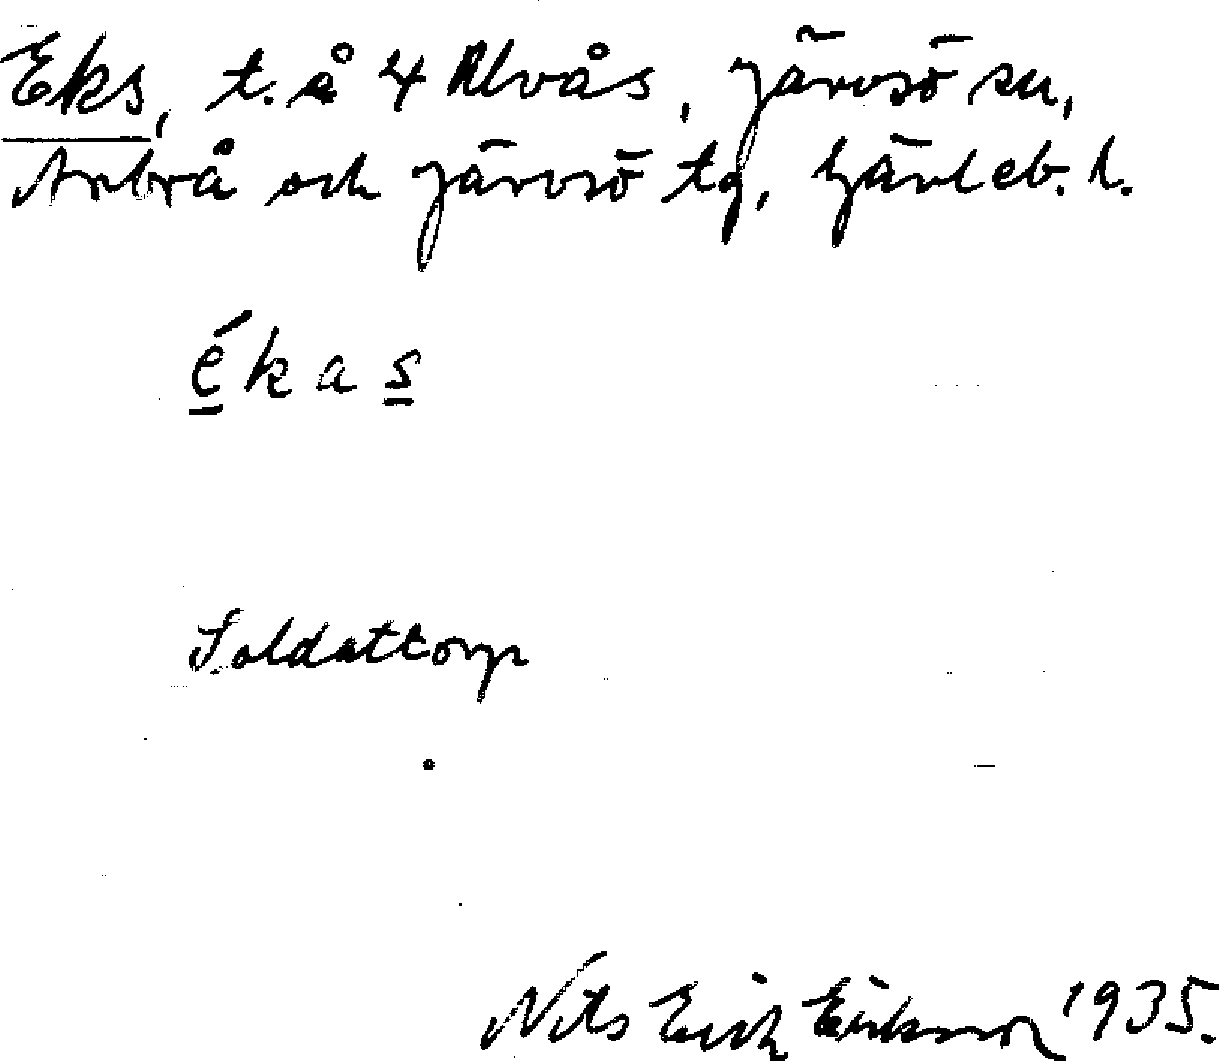 Eks, t. å 4 Ulvås, Järvsö sn,
Arbrå och Järvsö tg, Gävleb. l.
ékas
Soldattorp
Nils Erik Eriksson 1935.